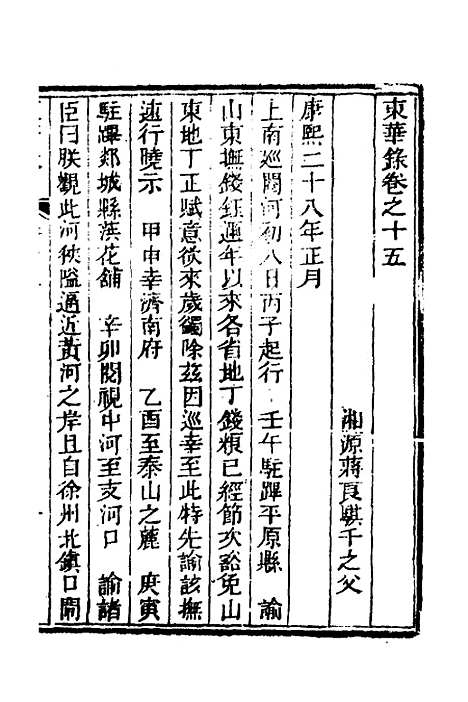 東華錄卷之十五
湘源蔣良騏千之父
康熙二十八年正月
上南巡閱河初八日丙子起行 壬午駐蹕平原縣 諭
山東撫錢鈺連年以來各省地丁錢糧已經節次豁免山
東地丁正賦意欲來歲蠲除茲因巡幸至此特先諭該撫
速行曉示 甲申幸濟南府 乙酉至泰山之麓 庚寅
駐蹕郯城縣紅花舖 辛卯閱視中河至支河口 諭諸
臣曰朕觀此河狹隘逼近黃河之岸且自徐州北鎮口閘